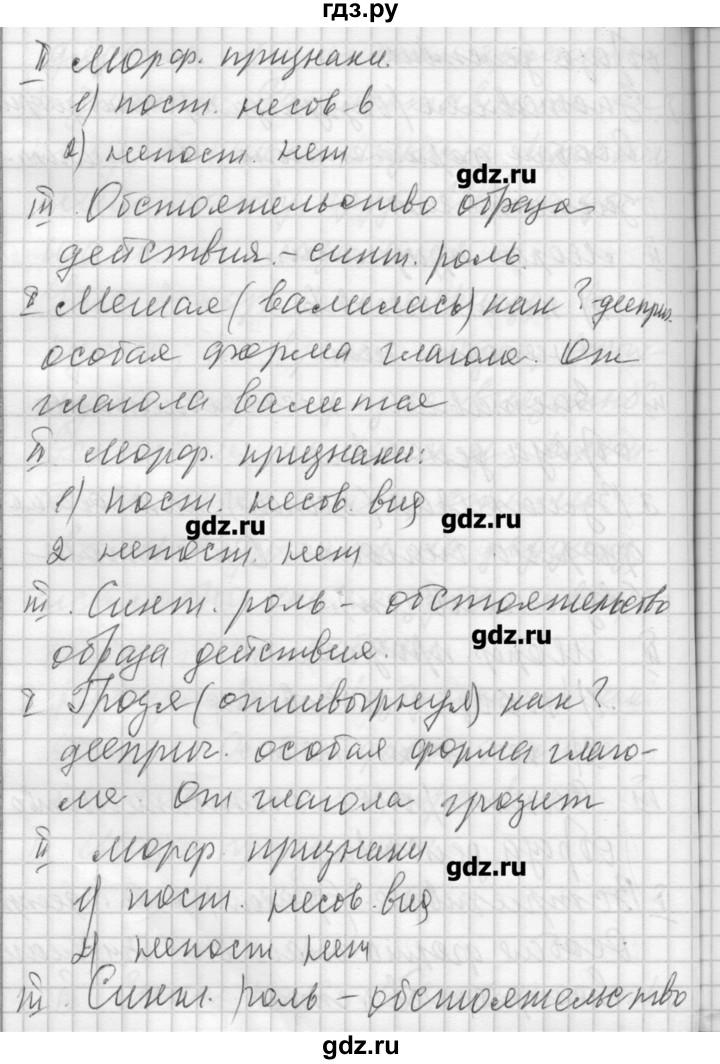 гдз.ру
II Морф. признаки.
1) пост. несов. в
2) непост. нет
gdz.ru
III. Обстоятельство образа
действия. – синт. роль.
I Мешая (валилась) как? дееприч.
особая форма глагола. От
глагола валится
II. Морф. признаки:
1) пост. несов. вид
gdz.ru gdz.ru
2 непост. нет
III. Синт. роль – обстоятельство
gdz.ru
образа действия.
I Грозя (отшвырнул) как?
дееприч. особая форма глаго-
ла. От глагола грозит
II Морф. признаки
gdz.ru
1) пост. несов. вид
2) непост нет
III. Синт. роль – обстоятельство
gdz.ru